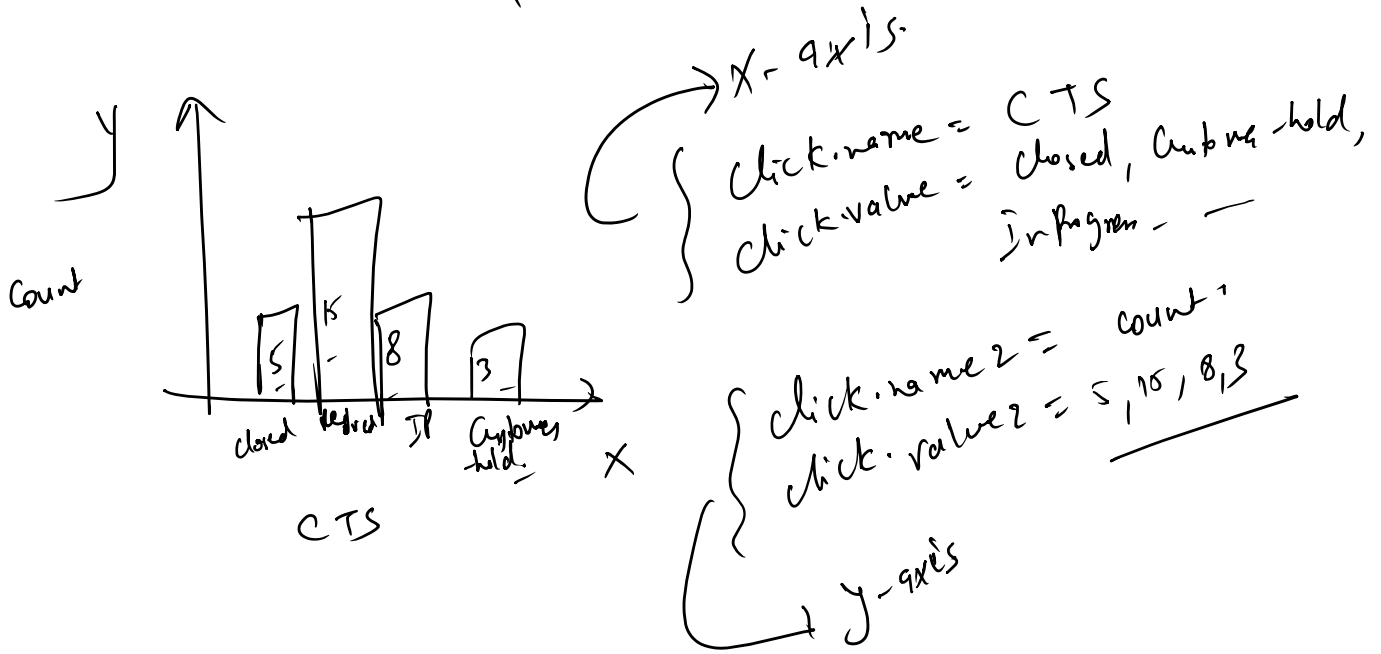 y
Count
5
15
8
3
closed
IP
Customer
hold.
X
CTS
X - axis.
click.name = CTS
click.value = closed, Customer-hold,
In Progress - —
click.name2 = count
click.value2 = 5, 15, 8, 3
y-axis